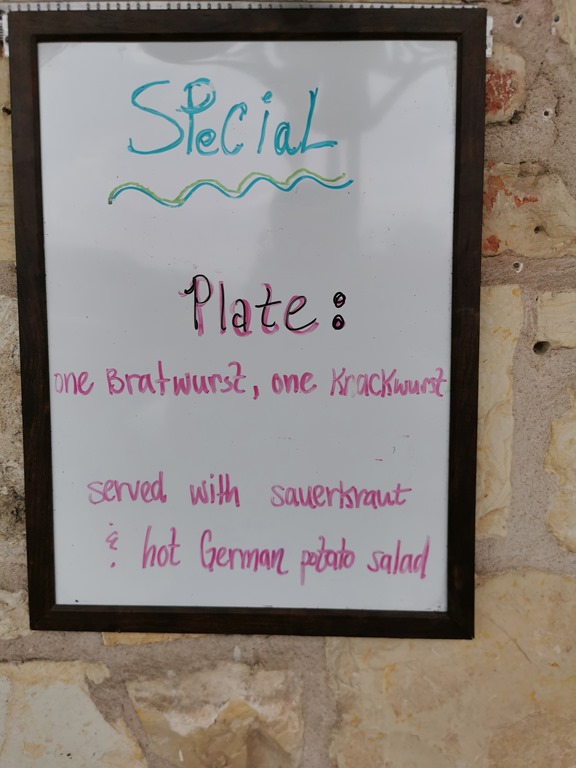 Special
Plate:
one Bratwurst, one Krackwurst
served with sauerkraut
& hot German potato salad